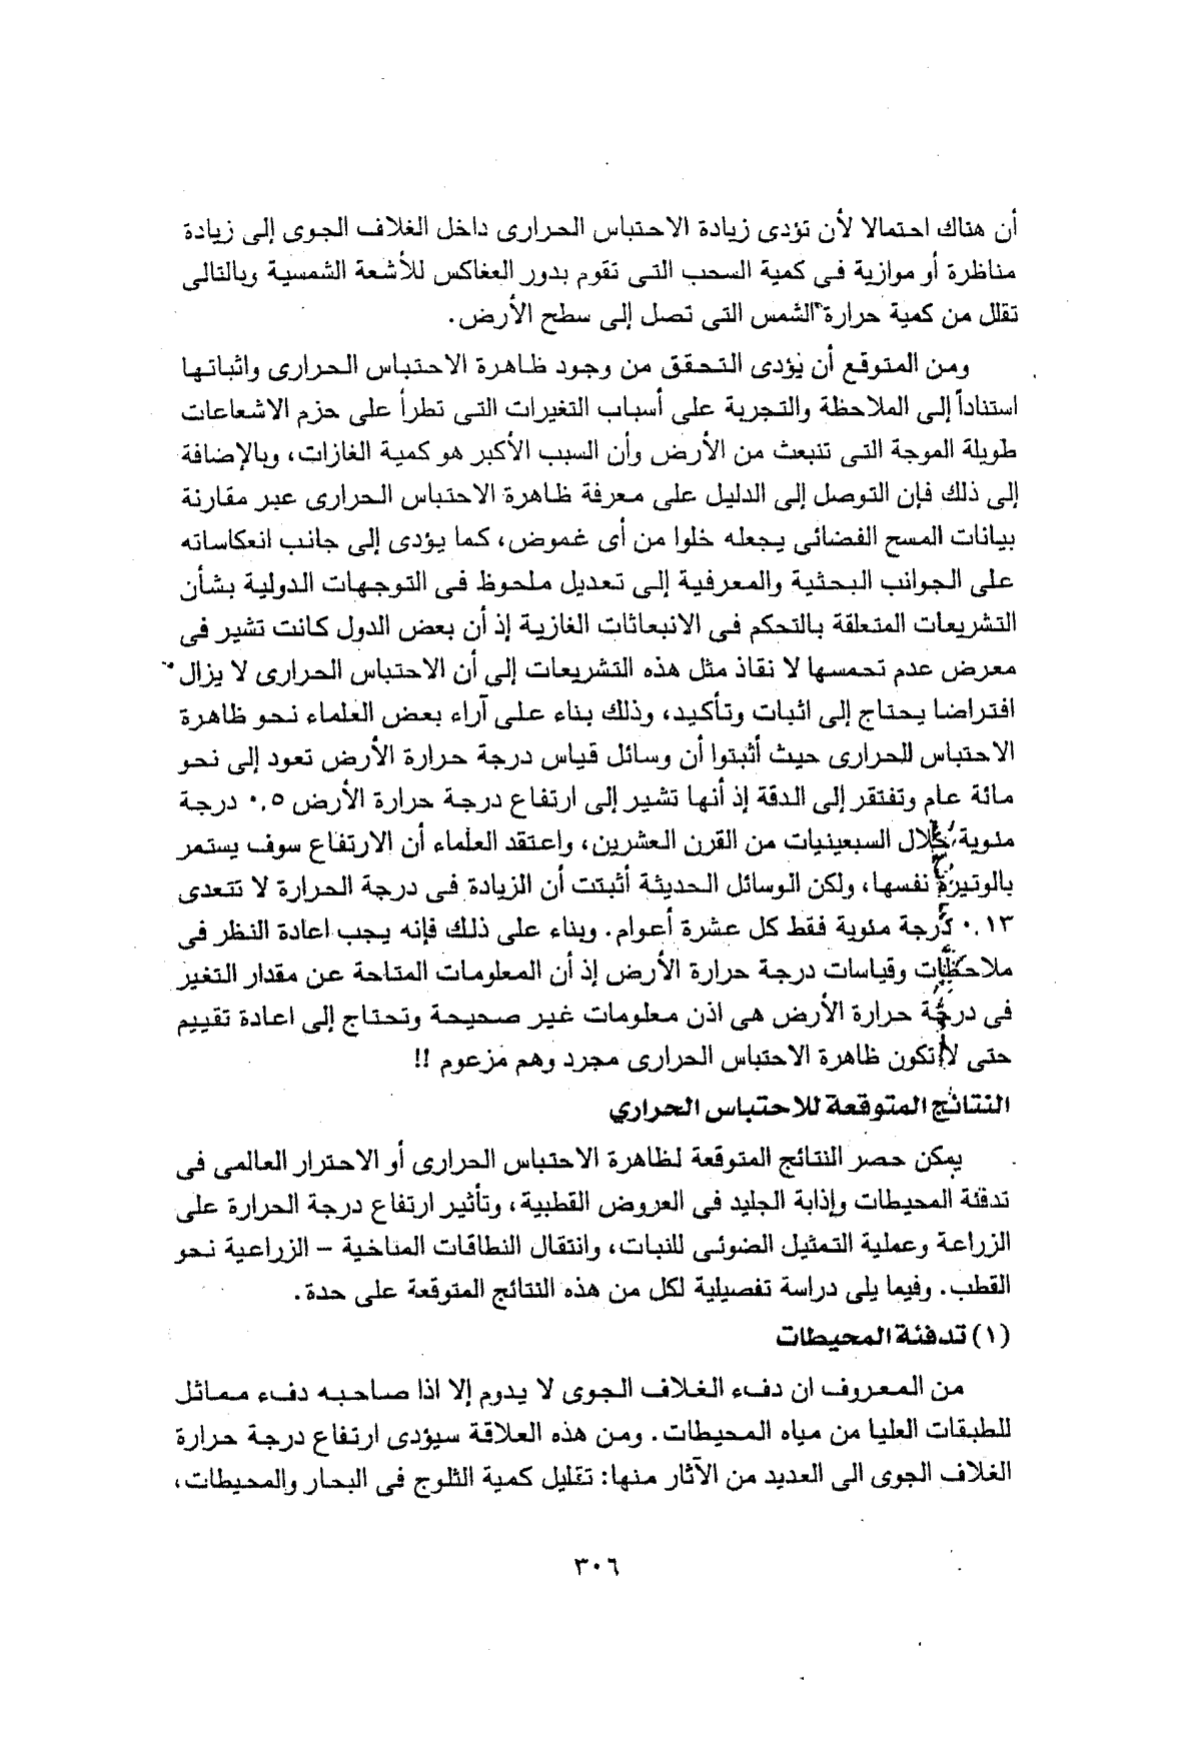 أن هناك احتمالا لأن تؤدى زيادة الاحتباس الحرارى داخل الغلاف الجوى إلى زيادة
مناظرة أو موازية فى كمية السحب التى تقوم بدور العفاكس للأشعة الشمسية وبالتالى
تقلل من كمية حرارة الشمس التى تصل إلى سطح الأرض.
ومن المتوقع أن يؤدى التحقق من وجود ظاهرة الاحتباس الحرارى واثباتها
استناداً إلى الملاحظة والتجربة على أسباب التغيرات التى تطرأ على حزم الاشعاعات
طويلة الموجة التى تنبعث من الأرض وأن السبب الأكبر هو كمية الغازات، وبالإضافة
إلى ذلك فإن التوصل إلى الدليل على معرفة ظاهرة الاحتباس الحرارى عبر مقارنة
بيانات المسح الفضائى يجعله خلوا من أى غموض، كما يؤدى إلى جانب انعكاساته
على الجوانب البحثية والمعرفية إلى تعديل ملحوظ فى التوجهات الدولية بشأن
التشريعات المتعلقة بالتحكم فى الانبعاثات الغازية إذ أن بعض الدول كانت تشير فى
معرض عدم تحمسها لا نقاذ مثل هذه التشريعات إلى أن الاحتباس الحرارى لا يزال
افتراضا يحتاج إلى اثبات وتأكيد، وذلك بناء على آراء بعض العلماء نحو ظاهرة
الاحتباس الحرارى حيث أثبتوا أن وسائل قياس درجة حرارة الأرض تعود إلى نحو
مائة عام وتفتقر إلى الدقة إذ أنها تشير إلى ارتفاع درجة حرارة الأرض ٠,٥ درجة
مئوية خلال السبعينيات من القرن العشرين، واعتقد العلماء أن الارتفاع سوف يستمر
بالوتيرة نفسها، ولكن الوسائل الحديثة أثبتت أن الزيادة فى درجة الحرارة لا تتعدى
٠,١٣ درجة مئوية فقط كل عشرة أعوام. وبناء على ذلك فإنه يجب اعادة النظر فى
ملاحظات وقياسات درجة حرارة الأرض إذ أن المعلومات المتاحة عن مقدار التغير
فى درجة حرارة الأرض هى اذن معلومات غير صحيحة وتحتاج إلى اعادة تقييم
حتى لا تكون ظاهرة الاحتباس الحرارى مجرد وهم مزعوم !!
النتائج المتوقعة للاحتباس الحراري
يمكن حصر النتائج المتوقعة لظاهرة الاحتباس الحرارى أو الاحترار العالمى فى
تدفئة المحيطات وإذابة الجليد فى العروض القطبية، وتأثير ارتفاع درجة الحرارة على
الزراعة وعملية التمثيل الضوئى للنبات، وانتقال النطاقات المناخية – الزراعية نحو
القطب. وفيما يلى دراسة تفصيلية لكل من هذه النتائج المتوقعة على حدة.
(١) تدفئة المحيطات
من المعروف ان دفء الغلاف الجوى لا يدوم إلا اذا صاحبه دفء مماثل
للطبقات العليا من مياه المحيطات. ومن هذه العلاقة سيؤدى ارتفاع درجة حرارة
الغلاف الجوى الى العديد من الآثار منها: تقليل كمية الثلوج فى البحار والمحيطات،
٣٠٦